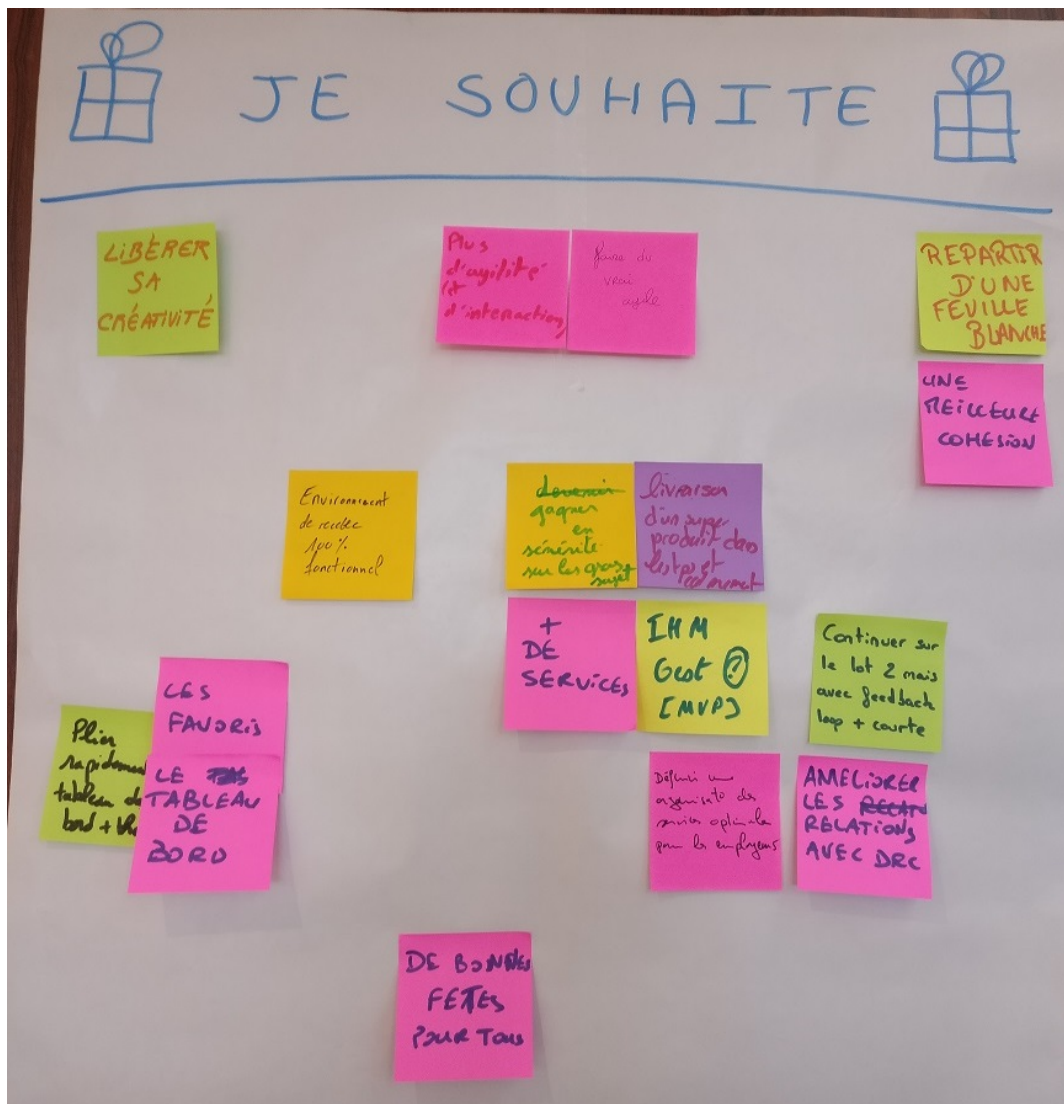 JE SOUHAITE
LIBÉRER
SA
CRÉATIVITÉ
Plus
d'agilité
et
d'interactions
faire du
vrai
agile
REPARTIR
D'UNE
FEUILLE
BLANCHE
UNE
MEILLEURE
COHESION
Environnement
de recette
100%
fonctionnel
devenir
gagner
en
sérénité
sur les gros
sujet
livraison
d'un super
produit dans
les tps et
+
DE
SERVICES
IHM
Gest ?
[MVP]
Continuer sur
le lot 2 mais
avec feedback
loop + courte
LES
FAVORIS
Plier
rapidement
tableau de
bord +
LE
TABLEAU
DE
BORD
Définir une
de
services optimale
pour les employeurs
AMELIORER
LES
RELATIONS
AVEC DRC
DE BONNES
FETES
POUR TOUS